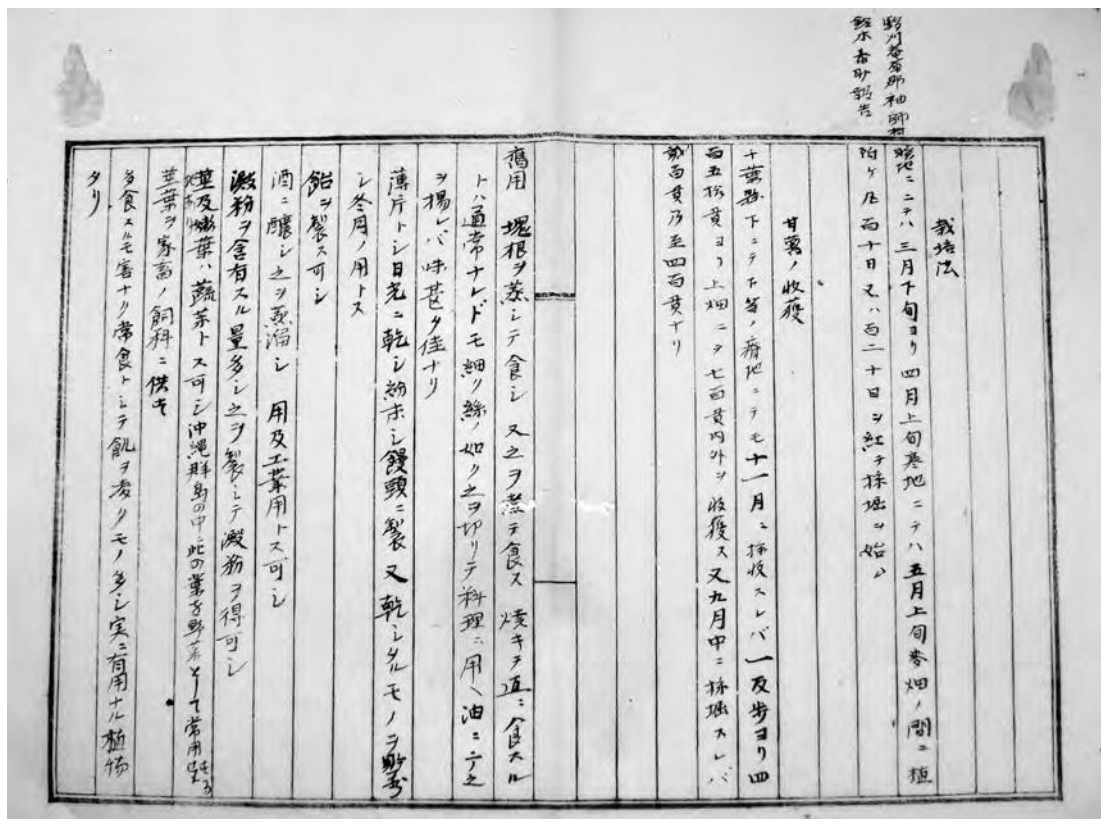 駿州菴原郡袖師村
鈴木香邨報告
栽培法
暖地ニテハ三月下旬ヨリ四月上旬寒地ニテハ五月上旬麥畑ノ間ニ植
附ケ凡百十日又ハ百二十日ヲ経テ採堀ヲ始ム
甘薯ノ收獲
千葉縣下ニテ下等ノ瘠地ニテモ十一月ニ採收スレバ一反歩ヨリ四
百五拾貫ヨリ上畑ニテ七百貫内外ヲ收獲ス又九月中ニ採堀スレバ
百貫乃至四百貫ナリ
應用 塊根ヲ蒸シテ食シ又之ヲ煮テ食ス焼キテ直ニ食スル
ハ通常ナレドモ細ク絲ノ如ク之ヲ切リテ料理ニ用ヘ油ニテ之
ヲ揚レバ味甚タ佳ナリ
薄片トシ日光ニ乾シ粉末シ饅頭ニ製又乾シタルモノヲ貯蓄
シ冬月ノ用トス
飴ヲ製ス可シ
酒ニ釀シ之ヲ蒸溜シ 用及工業用トス可シ
澱粉ヲ含有スル量多シ之ヲ製シテ澱粉ヲ得可シ
莖及嫩葉ハ蔬菜トス可シ沖縄群島の中ニ此の葉を野菜として常用
莖葉ヲ家畜ノ飼料ニ供す
多食スルモ害ナク常食トシテ飢ヲ凌クモノ多シ実ニ有用ナル植物
タリ